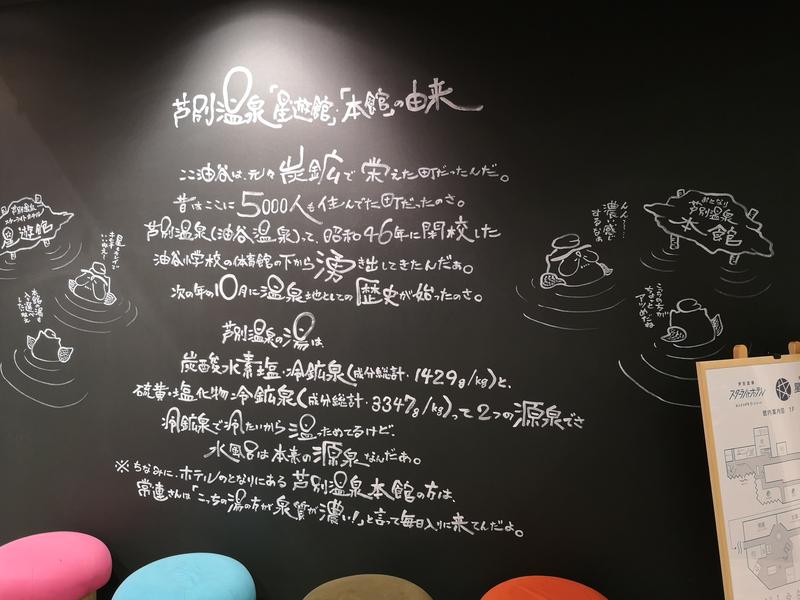 芦別温泉「星遊館」・「本館」の由来
ここ油谷は、元々炭鉱で栄えた町だったんだ。
昔はここに5000人も住んでた町だったのさ。
芦別温泉(油谷温泉)って、昭和46年に閉校した
油谷小学校の体育館の下から湧き出してきたんだあ。
次の年の10月に温泉地としての歴史が始ったのさ。
芦別温泉の湯は、
炭酸水素塩・冷鉱泉(成分総計・1429g/kg)と、
硫黄・塩化物冷鉱泉(成分総計・3347g/kg)って2つの源泉でさ
冷鉱泉で冷たいから温っためてるけど、
水風呂は本来の源泉なんだあ。
※ちなみに、ホテルのとなりにある芦別温泉本館の方は、
常連さんは「こっちの湯の方が泉質が濃い!」と言って毎日入りに来てんだよ。
芦別温泉
スターライトホテル
星遊館
本館の湯も
入る選べる
んん〜…
濃い感じ
するなぁ
おとなり
芦別温泉
本館
こっちの方が
ちょっと
アツめだね
芦別温泉
スターライトホテル
館内案内図 1F